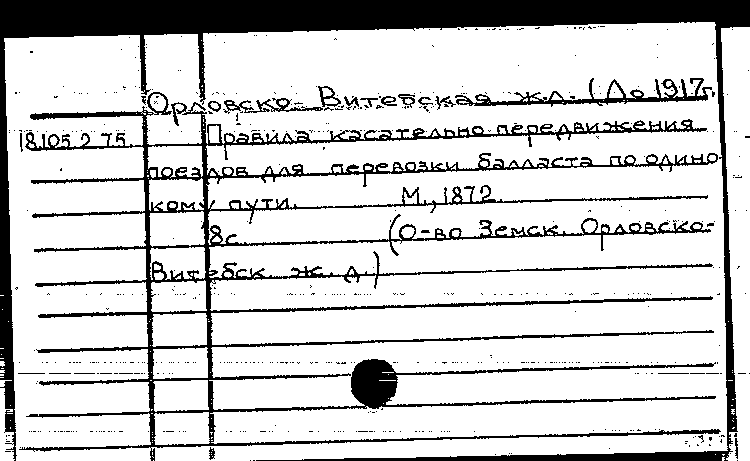 Орловско-Витебская ж.д. (До 1917г.
18.105.2.75. Правила касательно передвижения
поездов для перевозки балласта по одино-
кому пути. М., 1872.
8с. (О-во Земск. Орловско-
Витебск. ж. д.)